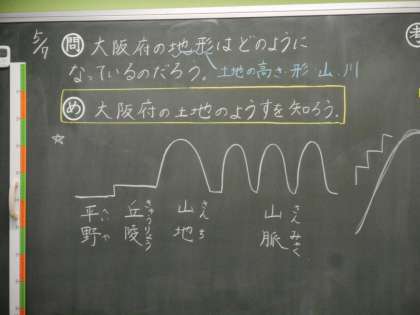 5/9
問 大阪府の地形はどのように
なっているのだろう。土地の高さ・形 山、川
め 大阪府の土地のようすを知ろう。
☆
平野 へいや
丘陵 きゅうりょう
山地 さんち
山脈 さんみゃく
考